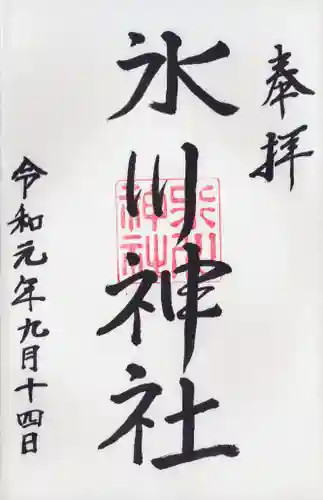 奉拝
氷川神社
氷川神社
令和元年九月十四日